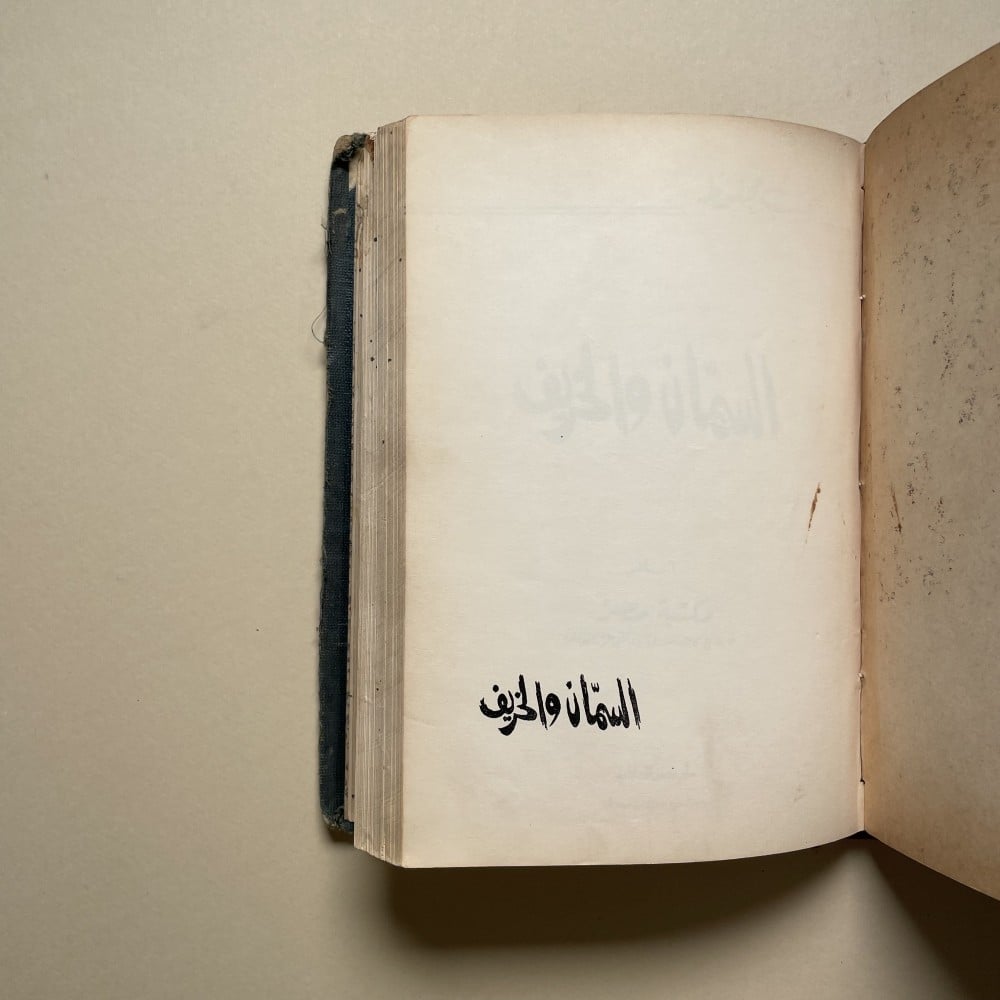 السمّان والخريف